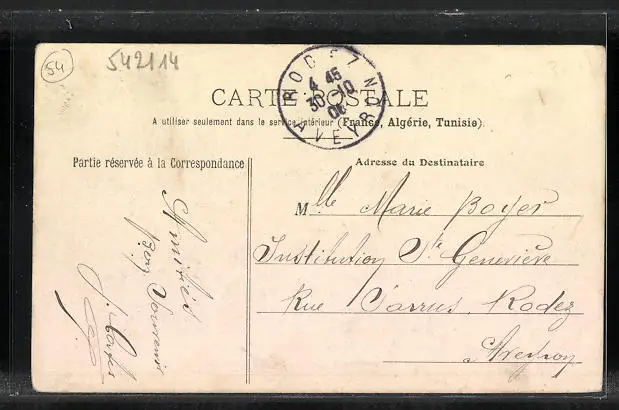 54
542114
CARTE POSTALE
RODEZ
4 45
30 10
06
AVEYRON
A utiliser seulement dans le service intérieur (France, Algérie, Tunisie).
Partie réservée à la Correspondance
Amitiés
Bon Souvenir
Adresse du Destinataire
Mlle Marie Boyer
Institution Ste Geneviève
Rue Sarrus Rodez
Aveyron